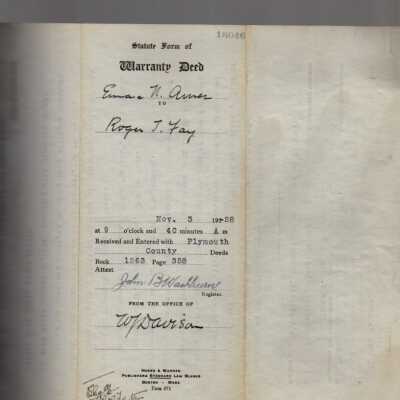 Statute Form of
Warranty Deed
Emma N. Ames
TO
Roger T. Fay
Nov. 3 1928
at 9 o'clock and 40 minutes A m
Received and Entered with Plymouth
County Deeds
Book 1563 Page 388
Attest
John B Washburn
Register.
FROM THE OFFICE OF
W J Davison
HOBBS & WARREN
PUBLISHERS STANDARD LAW BLANKS
BOSTON - MASS
Form 871